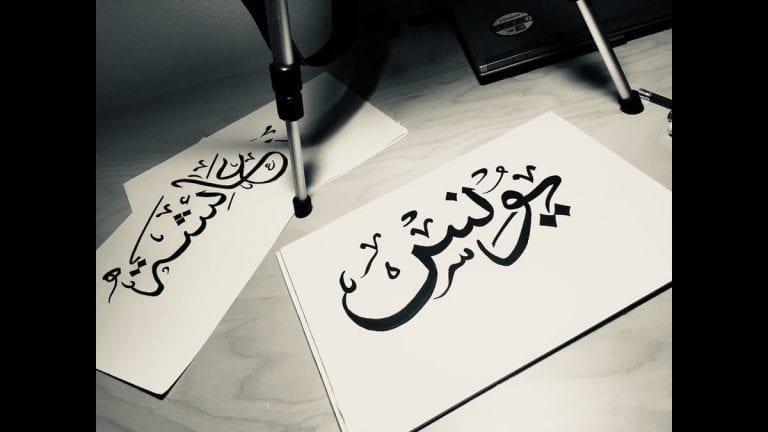 يونس
عائشة